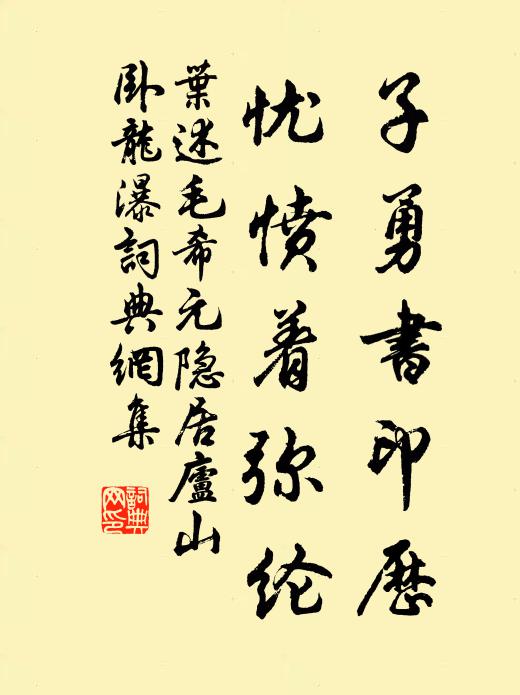 子勇書印歷
忧愤着弥纶
葉迷毛希元隐居廬山
卧龍瀑詞典網集
詞典网印